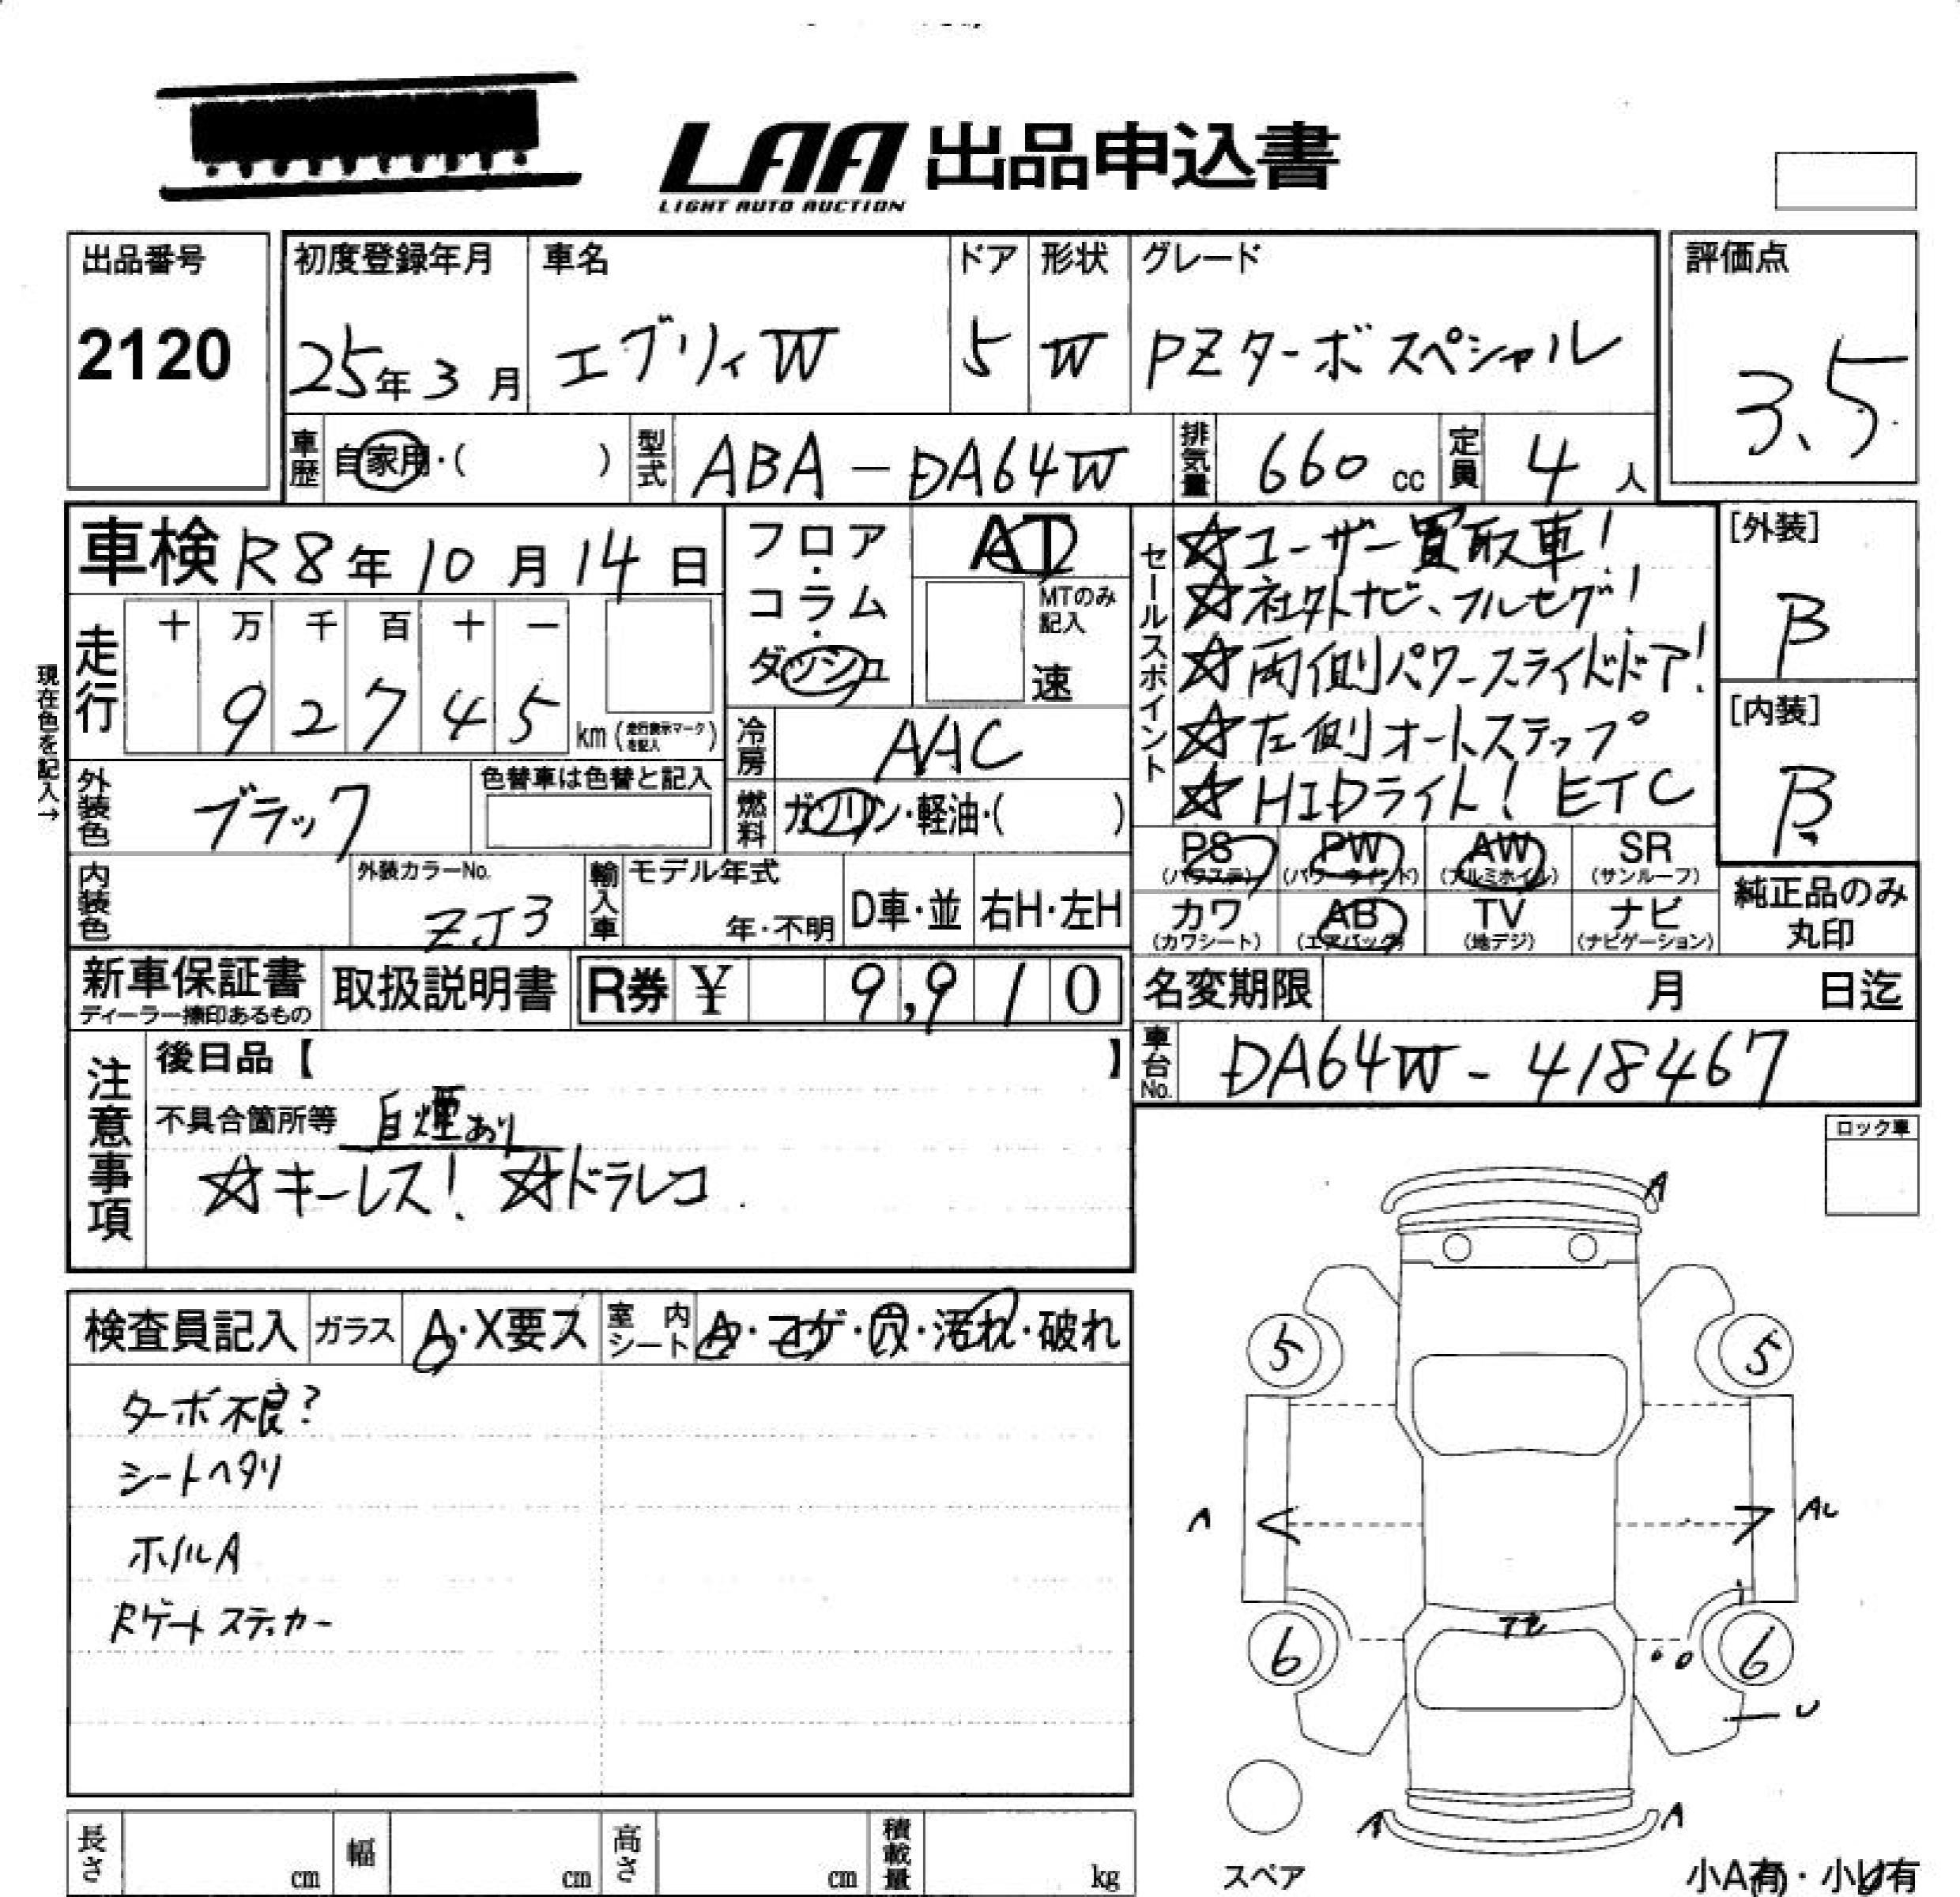 LAA 出品申込書
LIGHT AUTO AUCTION
出品番号
2120
初度登録年月
25年3月
車名
エブリィW
ドア
5
形状
W
グレード
PZターボスペシャル
評価点
3.5
車歴
自家用・( )
型式
ABA-DA64W
排気量
660 cc
定員
4人
車検 R8年10月14日
走行
十 万 千 百 十 一
9 2 7 4 5 km (走行表示マークを記入)
現在色を記入→
フロア・コラム・ダッシュ
AT
MTのみ記入
速
冷房
AAC
燃料
ガソリン・軽油・( )
外装色
ブラック
色替車は色替と記入
内装色
外装カラーNo.
ZJ3
輸入車
モデル年式
年・不明
D車・並
右H・左H
セールスポイント
☆ユーザー買取車!
☆社外ナビ、フルセグ!
☆両側パワースライドドア!
☆左側オートステップ
☆HIDライト! ETC
[外装]
B
[内装]
B
PS (パワステ)
PW (パワーウインド)
AW (アルミホイル)
SR (サンルーフ)
カワ (カワシート)
AB (エアバッグ)
TV (地デジ)
ナビ (ナビゲーション)
純正品のみ丸印
新車保証書
ディーラー捺印あるもの
取扱説明書
R券 ¥ 9,910
名変期限 月 日迄
車台No.
DA64W-418467
注意事項
後日品【 】
不具合箇所等 白煙あり
☆キーレス! ☆ドラレコ
ロック車
検査員記入
ガラス
A・X要ス
室内シート
A・コゲ・穴・汚れ・破れ
ターボ不良?
シートヘタリ
ホイルA
Rゲートステッカー
A
5
5
A
AU
6
6
U
A
A
スペア
小A有・小U有
長さ cm
幅 cm
高さ cm
積載量 kg